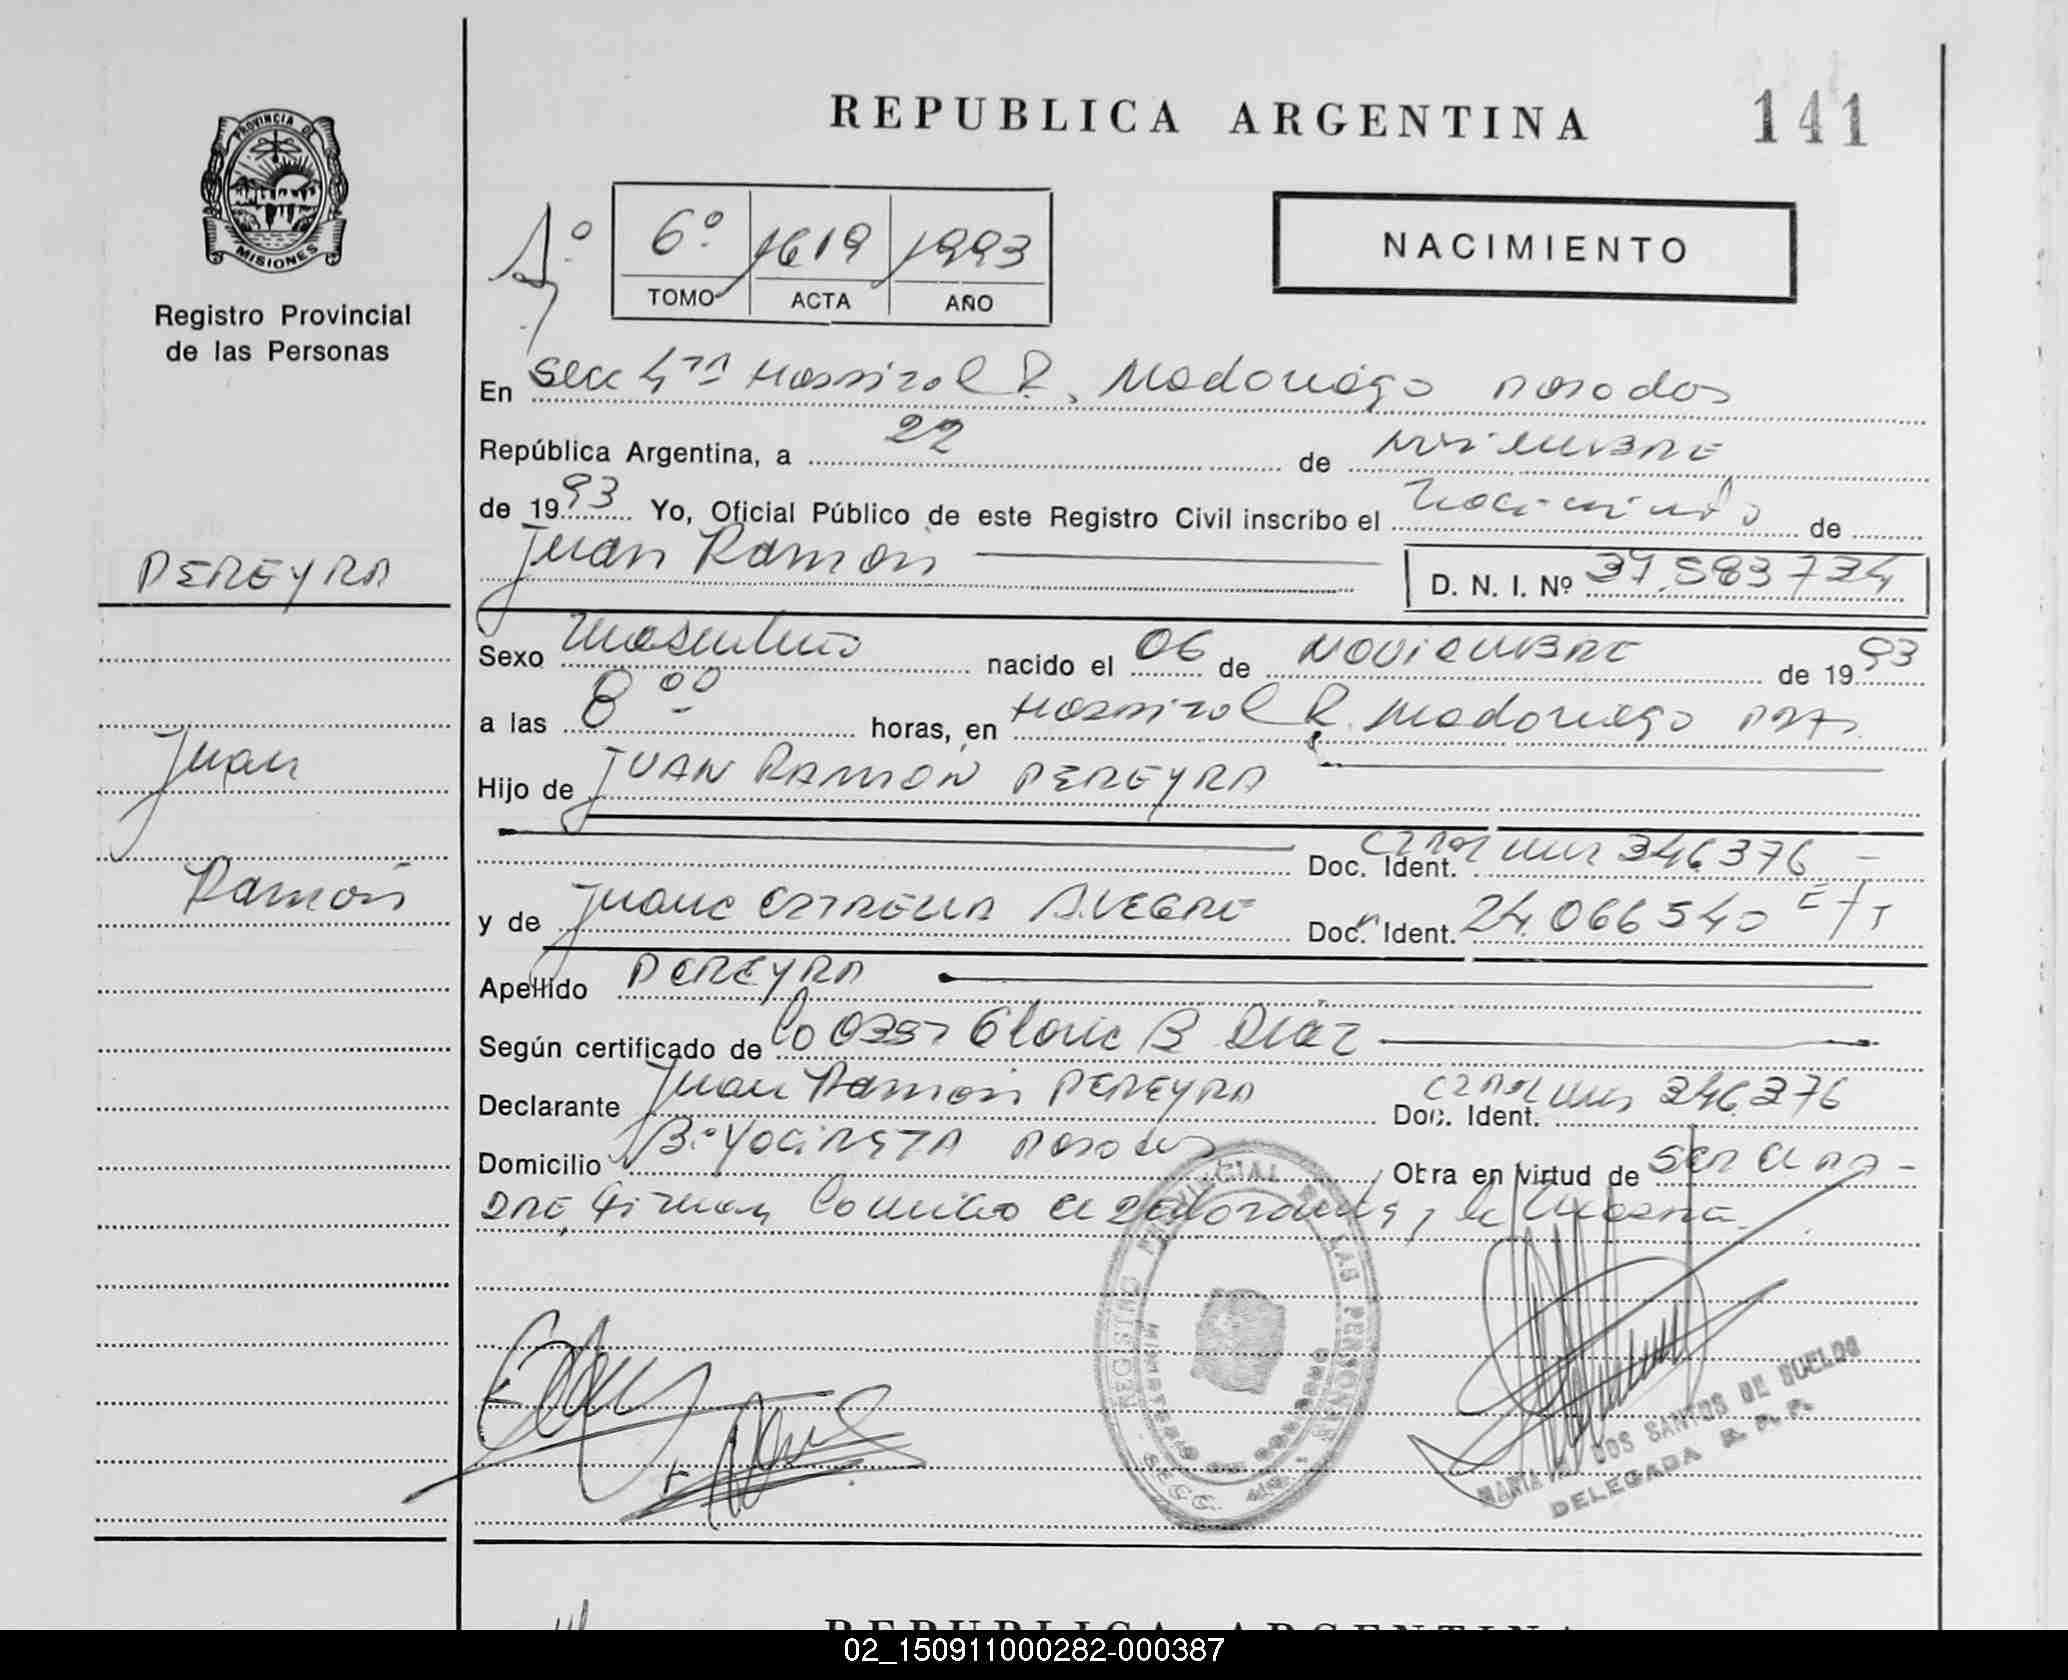 REPUBLICA ARGENTINA
141
PROVINCIA DE
MISIONES
Registro Provincial
de las Personas
6º 1619 1993
TOMO ACTA AÑO
NACIMIENTO
En Secc 4ta Hospital R. Madariaga Posadas
República Argentina, a 22 de Noviembre
de 1993 Yo, Oficial Público de este Registro Civil inscribo el Nacimiento de
Juan Ramon
D. N. I. Nº 37.583734
PEREYRA
Juan
Ramon
Sexo Masculino nacido el 06 de NOVIEMBRE de 1993
a las 8 00 horas, en Hospital R. Madariaga Pdas
Hijo de JUAN RAMON PEREYRA
Doc. Ident. 346.376
y de Juana ESTRELLA ALEGRE Doc. Ident. 24.066540
Apellido PEREYRA
Según certificado de Díaz
Declarante Juan Ramon PEREYRA Doc. Ident. 346.376
Domicilio Bº Yacireta Posadas Obra en virtud de ser el pa-
dre, firman
REGISTRO PROVINCIAL DE LAS PERSONAS
MINISTERIO DE GOBIERNO
SECC.
MARIA DOS SANTOS DE SUELDO
DELEGADA R. P. P.
REPUBLICA ARGENTINA
02_150911000282-000387